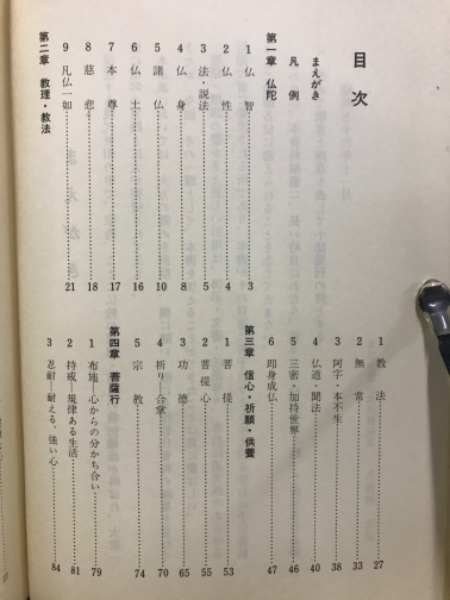 目次
まえがき
凡例
第一章 仏陀
1 仏智……3
2 仏性……4
3 法・説法……5
4 仏身……8
5 諸仏……10
6 仏土……16
7 本尊……17
8 慈悲……18
9 凡仏一如……21
第二章 教理・教法
1 教法……27
2 無常……33
3 阿字・本不生……38
4 仏道・聞法……40
5 三密・加持世界……46
6 即身成仏……47
第三章 信心・祈願・供養
1 菩提……53
2 菩提心……55
3 功徳……65
4 祈り―合掌……70
5 宗教……74
第四章 菩薩行
1 布施―心からの分かち合い……79
2 持戒―規律ある生活……81
3 忍耐―耐える、強い心……84